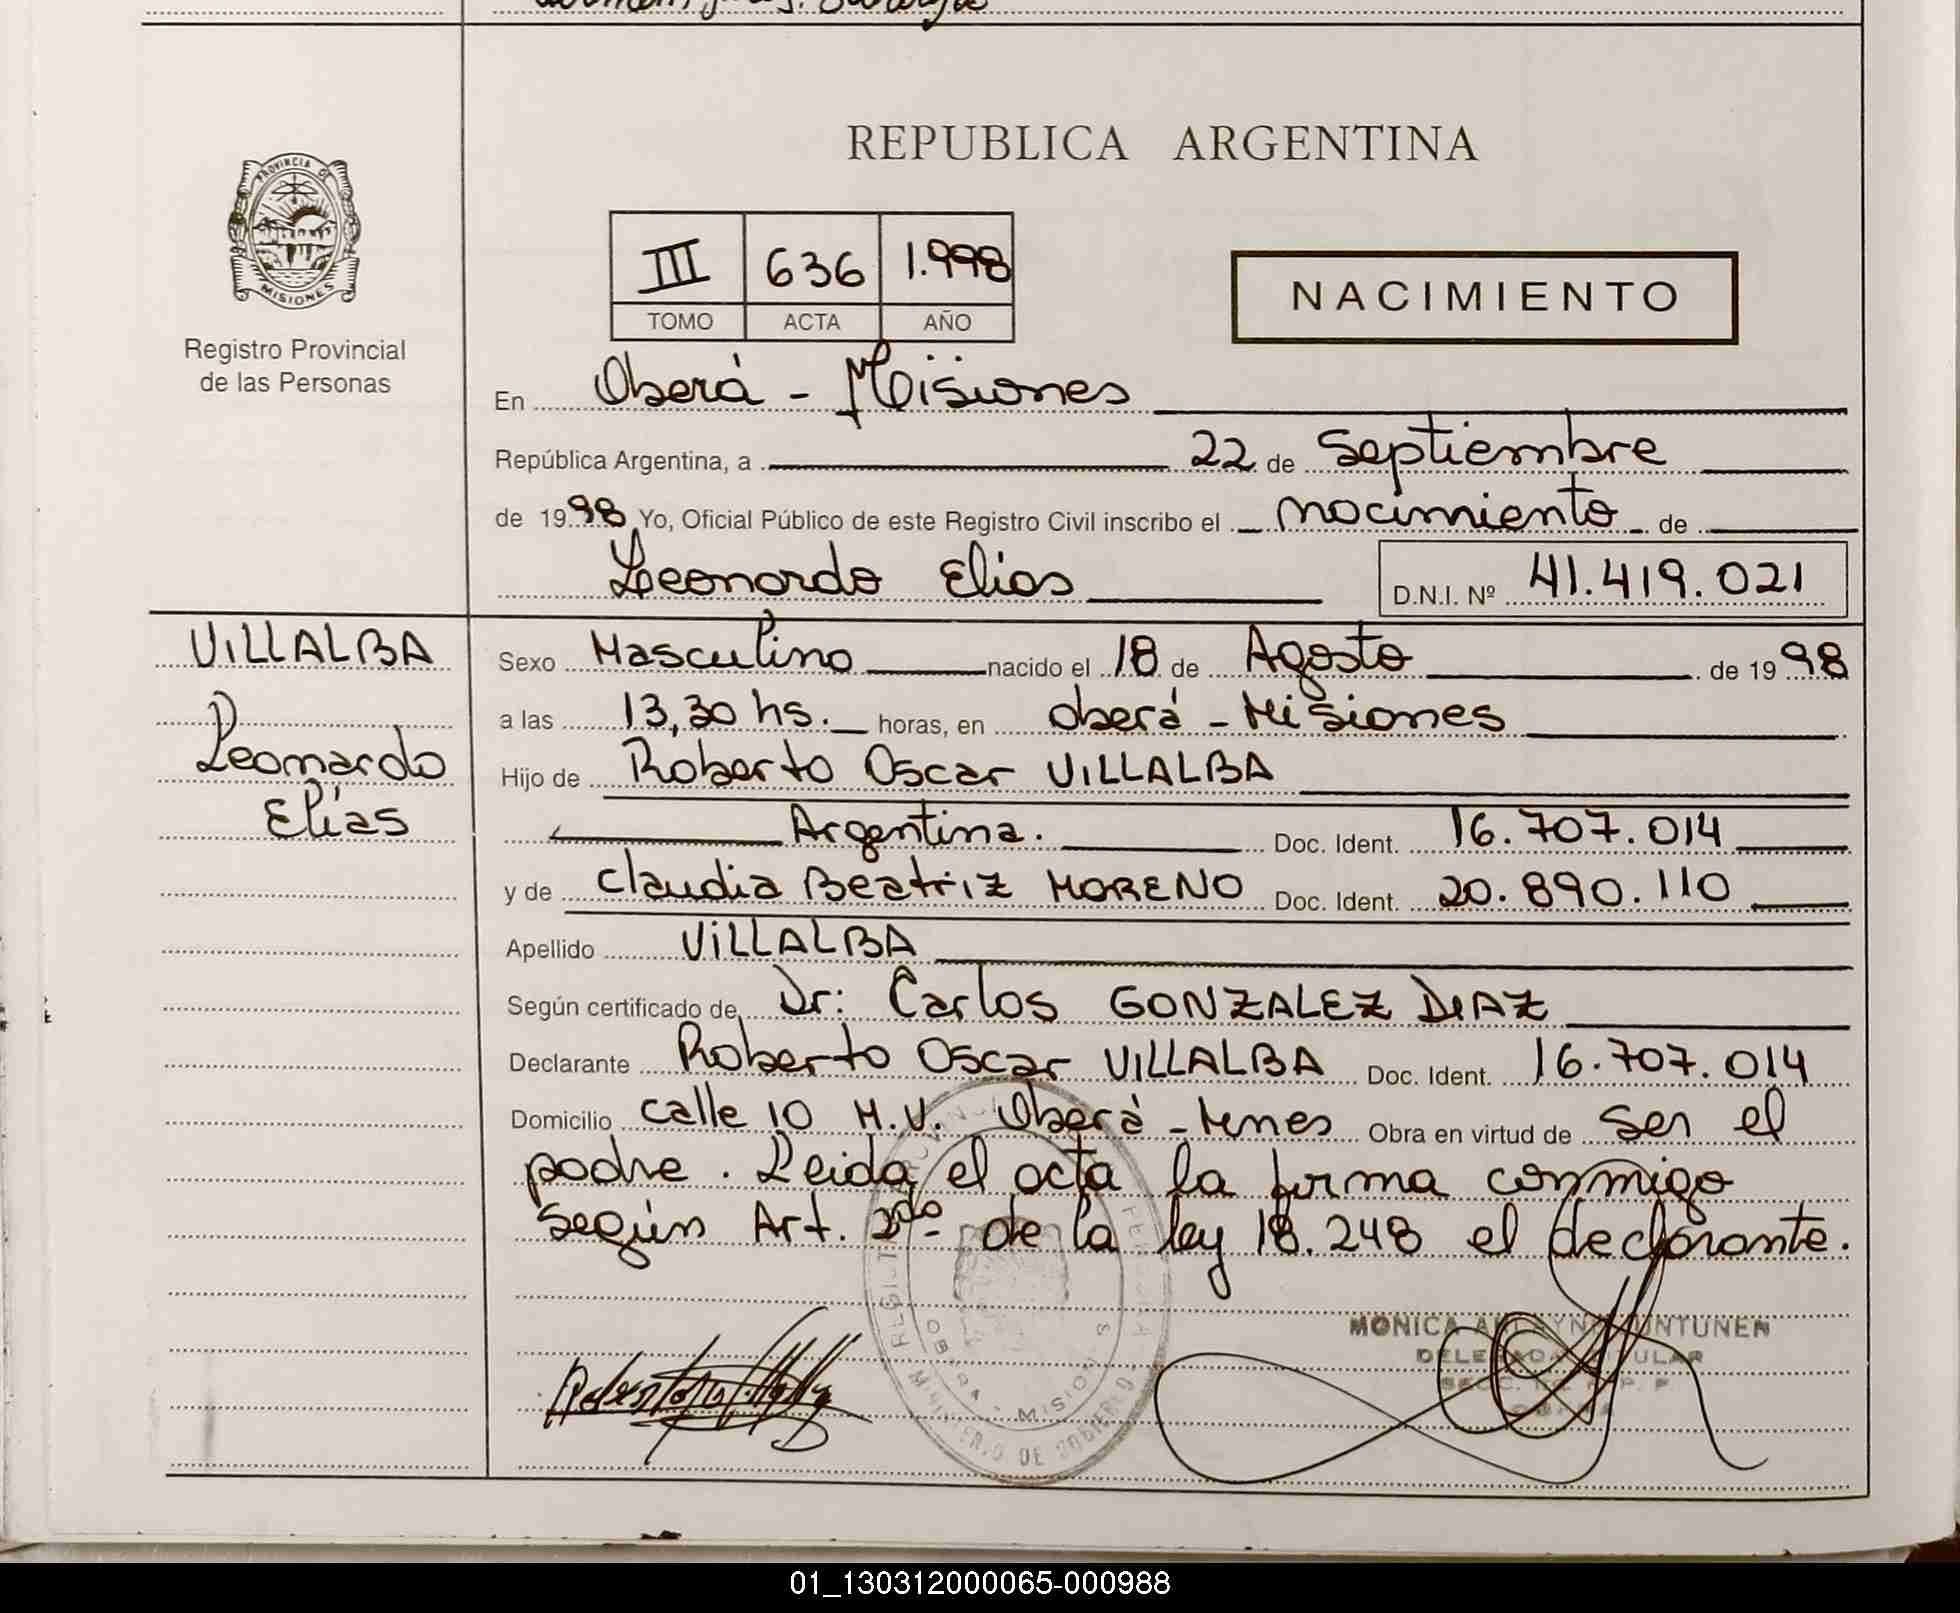 PROVINCIA DE
MISIONES
Registro Provincial
de las Personas
REPUBLICA ARGENTINA
III 636 1.998
TOMO ACTA AÑO
NACIMIENTO
En Oberá - Misiones
República Argentina, a 22 de Septiembre
de 1998 Yo, Oficial Público de este Registro Civil inscribo el nacimiento de
Leonardo Elias D.N.I. Nº 41.419.021
VILLALBA
Leonardo
Elías
Sexo Masculino nacido el 18 de Agosto de 1998
a las 13,30 hs. horas, en Oberá - Misiones
Hijo de Roberto Oscar VILLALBA
Argentina. Doc. Ident. 16.707.014
y de Claudia Beatriz MORENO Doc. Ident. 20.890.110
Apellido VILLALBA
Según certificado de Dr: Carlos GONZALEZ DIAZ
Declarante Roberto Oscar VILLALBA Doc. Ident. 16.707.014
Domicilio calle 10 M.V. Oberá - Mnes Obra en virtud de ser el
padre. Leida el acta la firma conmigo
según Art. 2do de la ley 18.248 el declarante.
MONICA
DELEGADA TITULAR
OBERA - MISIONES
MINISTERIO DE GOBIERNO
01_130312000065-000988